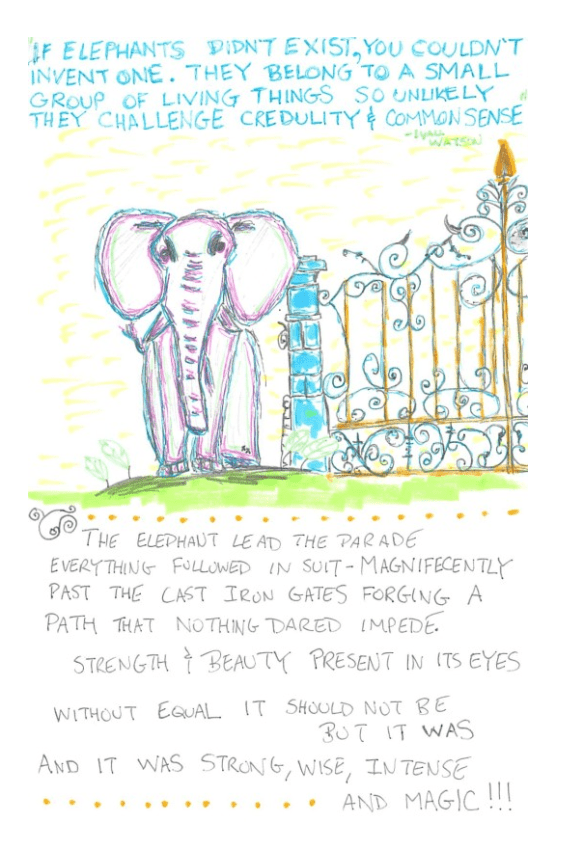 IF ELEPHANTS DIDN'T EXIST, YOU COULDN'T
INVENT ONE. THEY BELONG TO A SMALL
GROUP OF LIVING THINGS SO UNLIKELY
THEY CHALLENGE CREDULITY & COMMON SENSE
-LYALL
WATSON
THE ELEPHANT LEAD THE PARADE
EVERYTHING FOLLOWED IN SUIT - MAGNIFECENTLY
PAST THE CAST IRON GATES FORGING A
PATH THAT NOTHING DARED IMPEDE.
STRENGTH & BEAUTY PRESENT IN ITS EYES
WITHOUT EQUAL IT SHOULD NOT BE
BUT IT WAS
AND IT WAS STRONG, WISE, INTENSE
AND MAGIC!!!